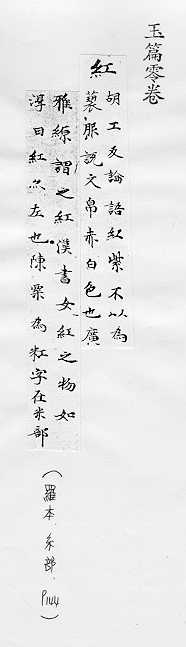 玉篇零卷
紅
胡工反論語紅紫不以為
褻服說文帛赤白色也廣
雅縓謂之紅漢書女紅之物如
淳曰紅亦左也陳粟為粠字在米部
(羅本.糸部.P144)